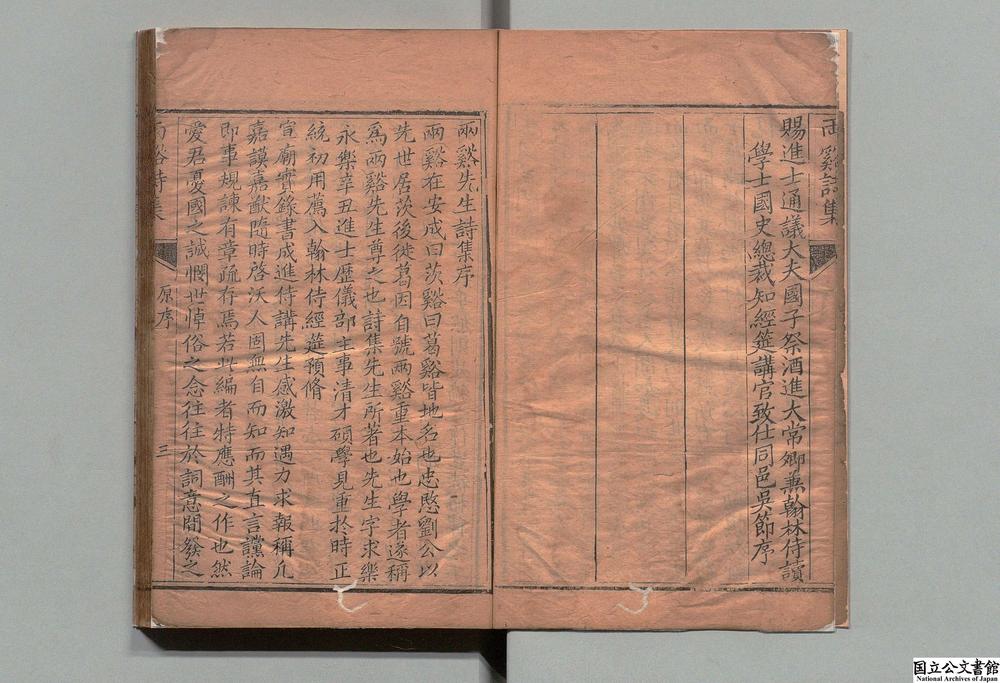 兩谿詩集
賜進士通議大夫國子祭酒進大常卿兼翰林侍讀
學士國史總裁知經筵講官致仕同邑吳節序
兩谿先生詩集序
兩谿在安成曰茨谿曰葛谿皆地名也忠愍劉公以
先世居茨後徙葛因自號兩谿重本始也學者遂稱
爲兩谿先生尊之也詩集先生所著也先生字求樂
永樂辛丑進士歴儀部主事清才碩學見重於時正
統初用薦入翰林侍經筵預脩
宣廟實錄書成進侍講先生感激知遇力求報稱凢
嘉謨嘉猷隨時啓沃人固無自而知而其直言讜論
即事規諫有章疏存焉若此編者特應酬之作也然
愛君憂國之誠憫世悼俗之念往往於詞意間發之
兩谿詩集
原序
三
国立公文書館
National Archives of Japan